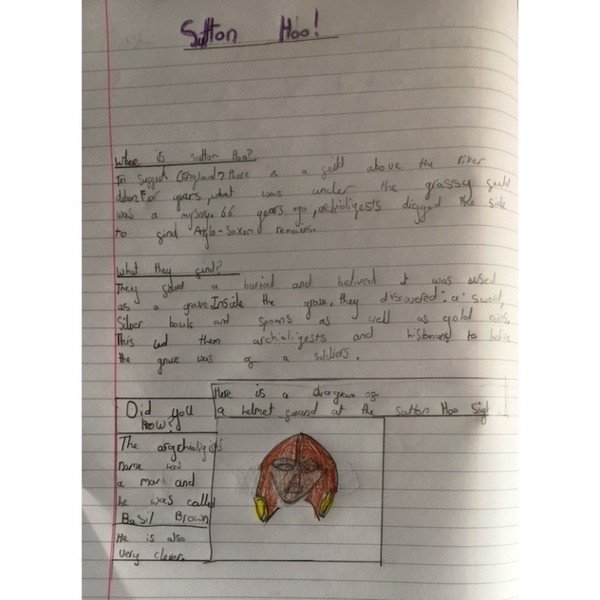 Sutton Hoo!
Where is sutton Hoo?
In Suffolk (England) there is a feild above the river
For years, what was under the grassy feild
was a mystry. 66 years ago, archioligests digged the side
to find Anglo-Saxon remains.
What they find?
They found a burial and belived it was used
as a grave. Inside the grave, they discovered: a sword,
Silver bowls and spoons as well as gold coins.
This led them archioligests and historians to belive
the grave was of a soldiers.
Here is a diagram of
a helmet found at the sutton Hoo Sight.
Did you
know?
The argchioligists
name was
a man and
he was called
Basil Brown
He is also
very clever.